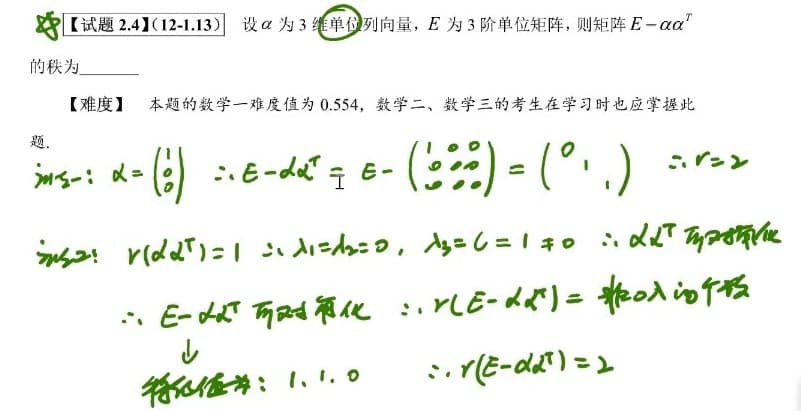 【试题 2.4】(12-1.13) 设 α 为 3 维单位列向量，E 为 3 阶单位矩阵，则矩阵 E－αα^T
的秩为______
【难度】 本题的数学一难度值为 0.554，数学二、数学三的考生在学习时也应掌握此
题．
法一: α = (1 0 0) ∴ E-αα^T = E - (1 0 0 0 0 0 0 0 0) = (0 1 1) ∴ r=2
法2: r(αα^T)=1 ∴ λ₁=λ₂=0, λ₃=C=1≠0 ∴ αα^T 可对角化
∴ E-αα^T 可对角化 ∴ r(E-αα^T) = 非0λ的个数
↓
特征值为: 1. 1. 0 ∴ r(E-αα^T)=2